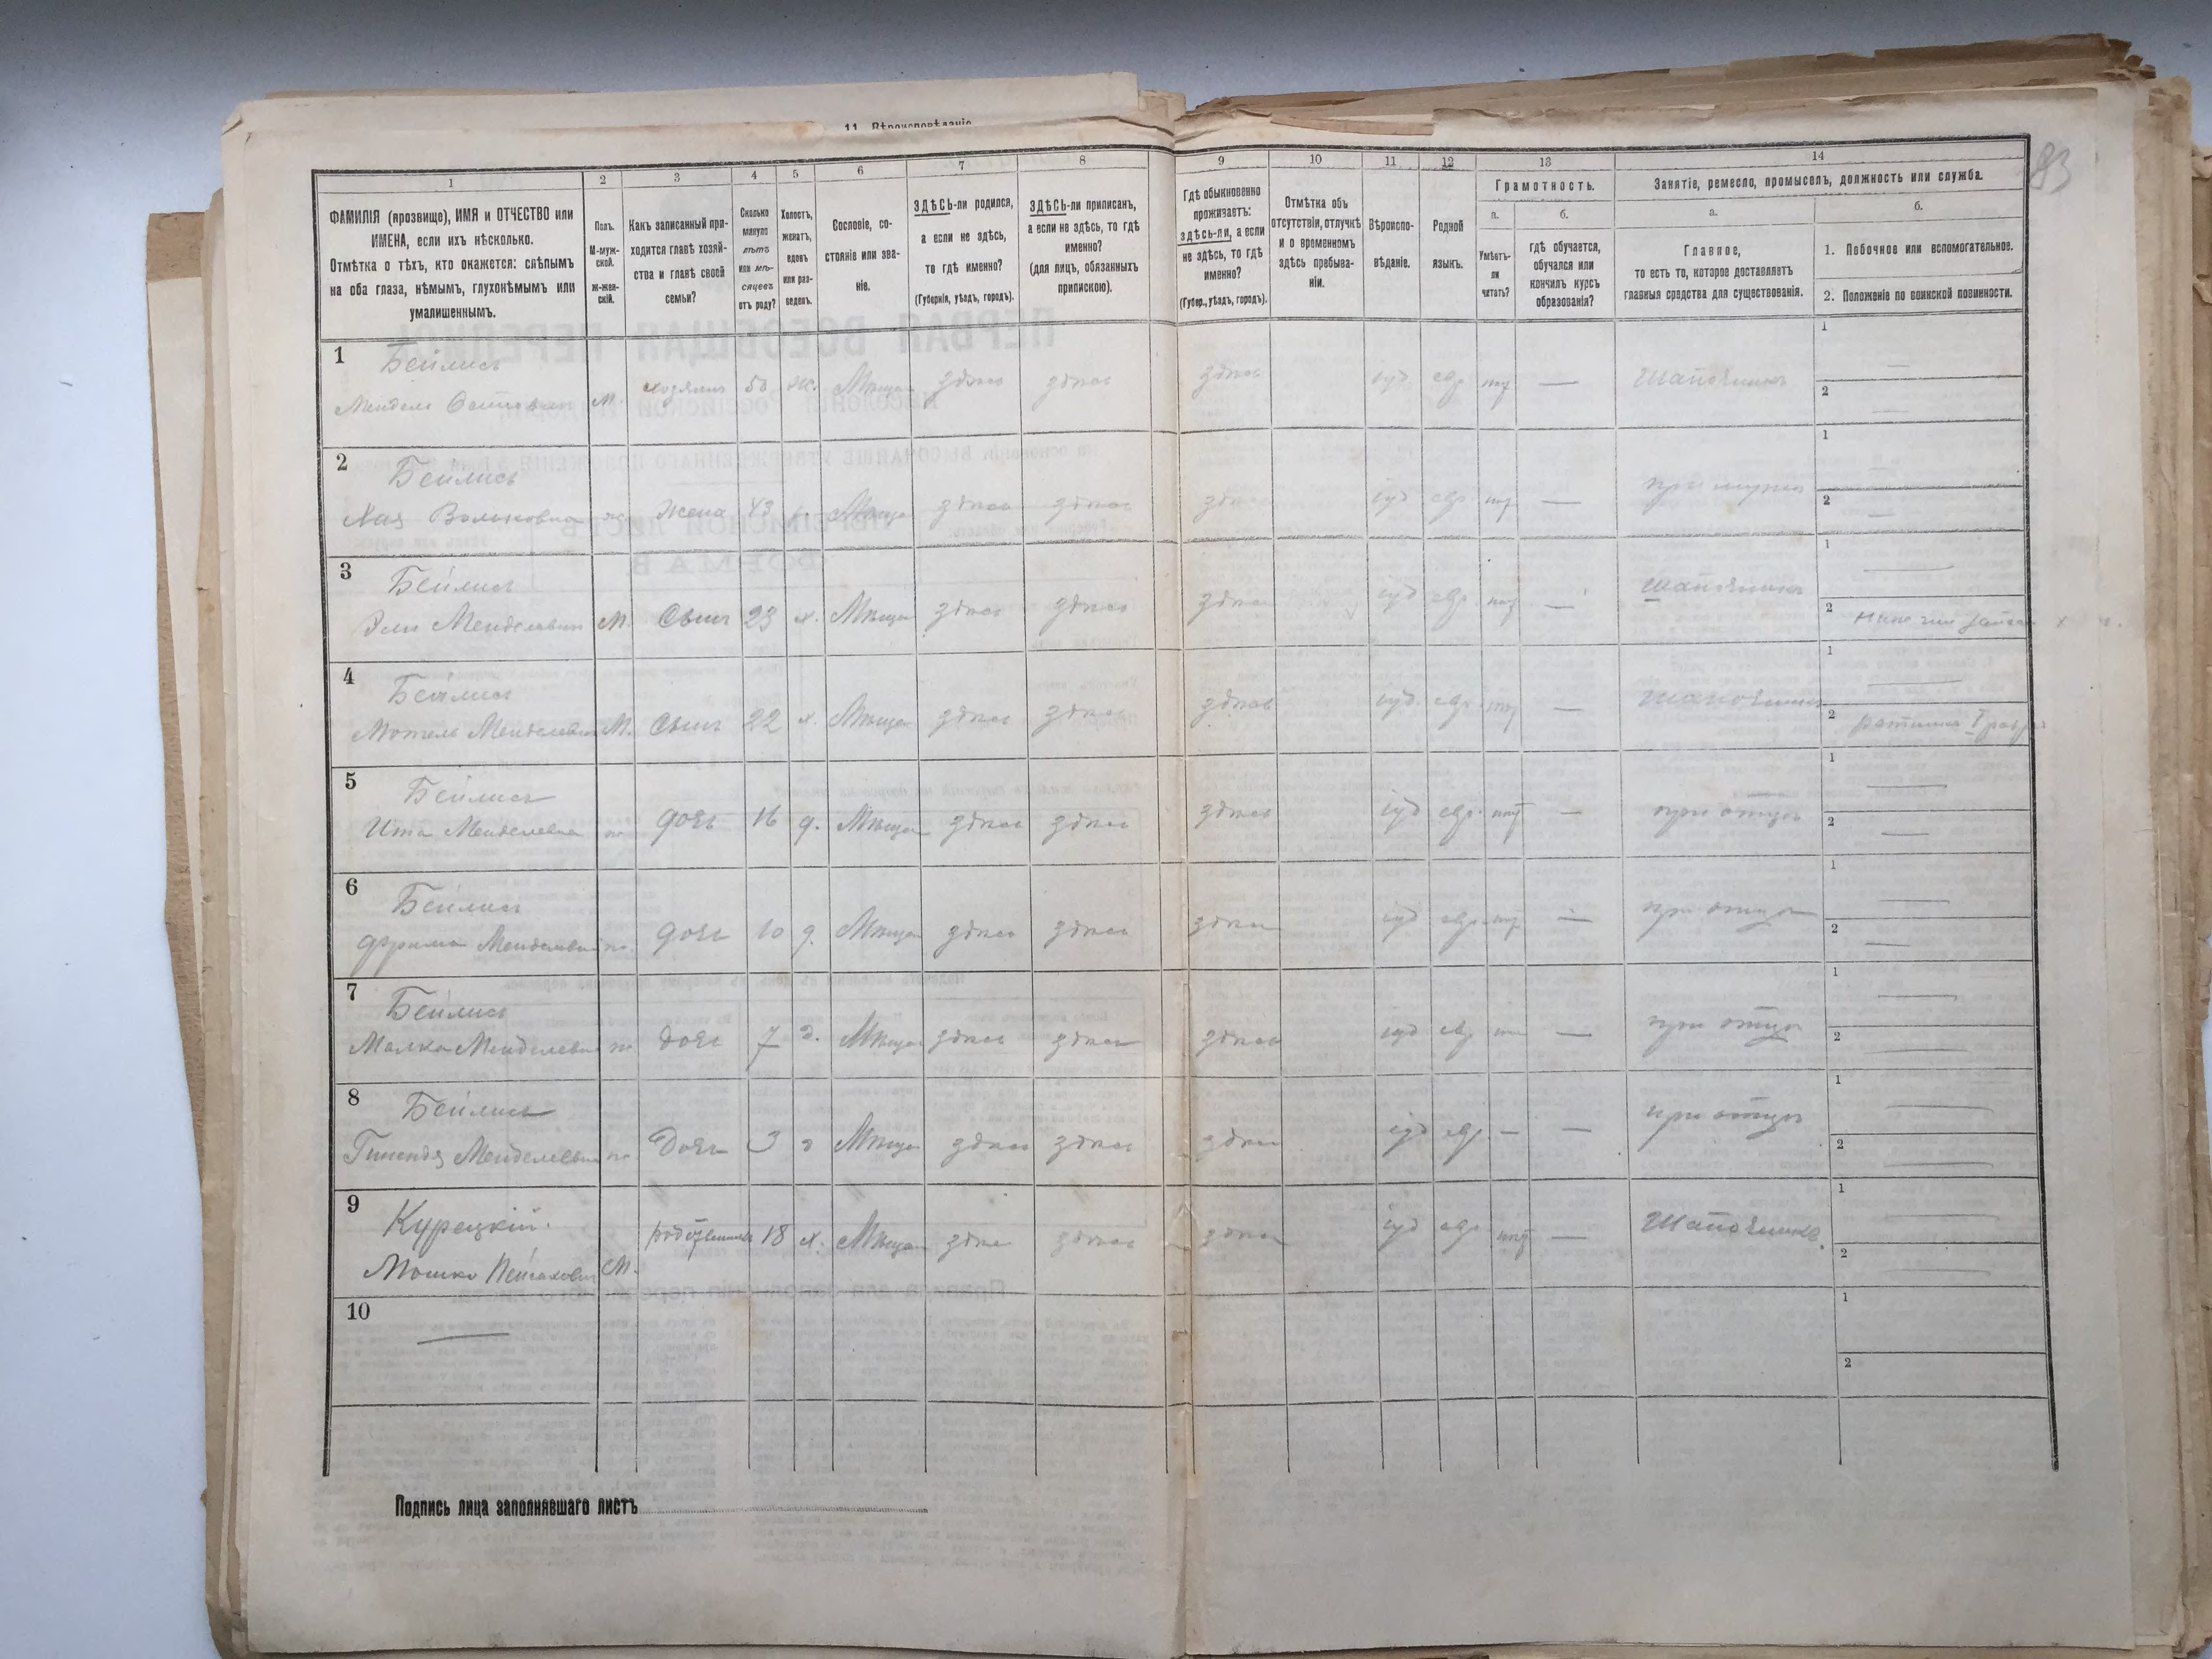 11. Вѣроисповѣданіе
83
1
2
3
4
5
6
7
8
9
10
11
12
13
14
ФАМИЛІЯ (прозвище), ИМЯ и ОТЧЕСТВО или
ИМЕНА, если ихъ нѣсколько.
Отмѣтка о тѣхъ, кто окажется: слѣпымъ
на оба глаза, нѣмымъ, глухонѣмымъ или
умалишеннымъ.
Полъ.
М-муж-
ской.
Ж-жен-
скій.
Какъ записанный при-
ходится главѣ хозяй-
ства и главѣ своей
семьи?
Сколько
минуло
лѣтъ
или мѣ-
сяцевъ
отъ роду?
Холостъ,
женатъ,
вдовъ
или раз-
веденъ.
Сословіе, со-
стояніе или зва-
ніе.
ЗДѢСЬ-ли родился,
а если не здѣсь,
то гдѣ именно?
(Губернія, уѣздъ, городъ).
ЗДѢСЬ-ли приписанъ,
а если не здѣсь, то гдѣ
именно?
(для лицъ, обязанныхъ
припискою).
Гдѣ обыкновенно
проживаетъ:
здѣсь-ли, а если
не здѣсь, то гдѣ
именно?
(Губер., уѣздъ, городъ).
Отмѣтка объ
отсутствіи, отлучкѣ
и о временномъ
здѣсь пребыва-
ніи.
Вѣроиспо-
вѣданіе.
Родной
языкъ.
Грамотность.
а.
б.
Умѣетъ-
ли
читать?
гдѣ обучается,
обучался или
кончилъ курсъ
образованія?
Занятіе, ремесло, промыселъ, должность или служба.
а.
б.
Главное,
то есть то, которое доставляетъ
главныя средства для существованія.
1. Побочное или вспомогательное.
2. Положеніе по воинской повинности.
1 Бейлисъ
Мендель М. хозяинъ ж. Мѣщан здѣсь здѣсь здѣсь іуд евр нѣт — Шапочникъ 1 — 2 —
2 Бейлисъ
Хая Вольковна ж Жена 43 Мѣщан здѣсь здѣсь іуд евр. нѣт — при мужѣ 1 2
3 Бейлисъ
Эли Менделевич М. Сынъ 23 х. Мѣщан здѣсь здѣсь здѣсь іуд евр. нѣт — Шапочникъ 1 — 2
4 Бейлисъ
Мотель Менделевич М. Сынъ 22 х. Мѣщан здѣсь здѣсь здѣсь іуд. евр. нѣт — Шапочникъ 1 — 2 ратникъ I разр
5 Бейлисъ
Ита Менделевна ж дочь 16 д. Мѣщан здѣсь здѣсь здѣсь іуд евр. нѣт — при отцѣ 1 — 2 —
6 Бейлисъ
Фрума Менделевн ж. дочь 10 д. Мѣщан здѣсь здѣсь здѣсь іуд евр. нѣт — при отцѣ 1 — 2 —
7 Бейлисъ
Малка Менделевн ж дочь 7 д. Мѣщан здѣсь здѣсь здѣсь іуд евр — при отцѣ 1 — 2 —
8 Бейлисъ
Менделевн ж Дочь 3 д Мѣщан здѣсь здѣсь здѣсь іуд евр. — — при отцѣ 1 — 2 —
9 Курецкій.
Мошко Пейсахович М. 18 х. Мѣщан здѣсь здѣсь здѣсь іуд евр нѣт — Шапочникъ. 1 2 —
10 — 1 2
Подпись лица заполнявшаго листъ